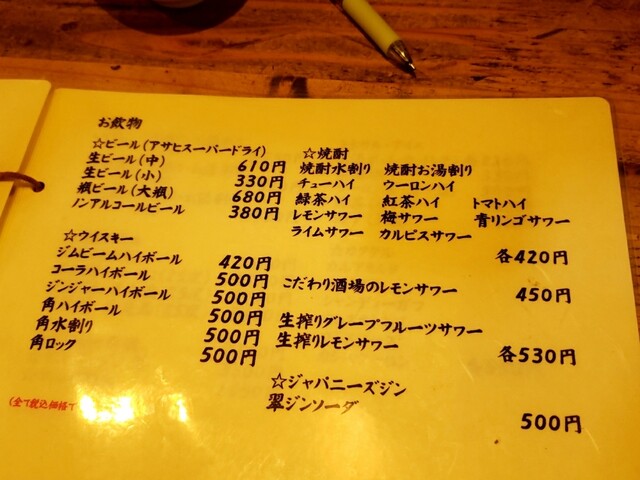 お飲物
☆ビール(アサヒスーパードライ)
生ビール(中) 610円
生ビール(小) 330円
瓶ビール(大瓶) 680円
ノンアルコールビール 380円
☆ウイスキー
ジムビームハイボール 420円
コーラハイボール 500円
ジンジャーハイボール 500円
角ハイボール 500円
角水割り 500円
角ロック 500円
☆焼酎
焼酎水割り 焼酎お湯割り
チューハイ ウーロンハイ
緑茶ハイ 紅茶ハイ トマトハイ
レモンサワー 梅サワー 青リンゴサワー
ライムサワー カルピスサワー
各420円
こだわり酒場のレモンサワー
450円
生搾りグレープフルーツサワー
生搾りレモンサワー
各530円
☆ジャパニーズジン
翠ジンソーダ
500円
(全て税込価格で